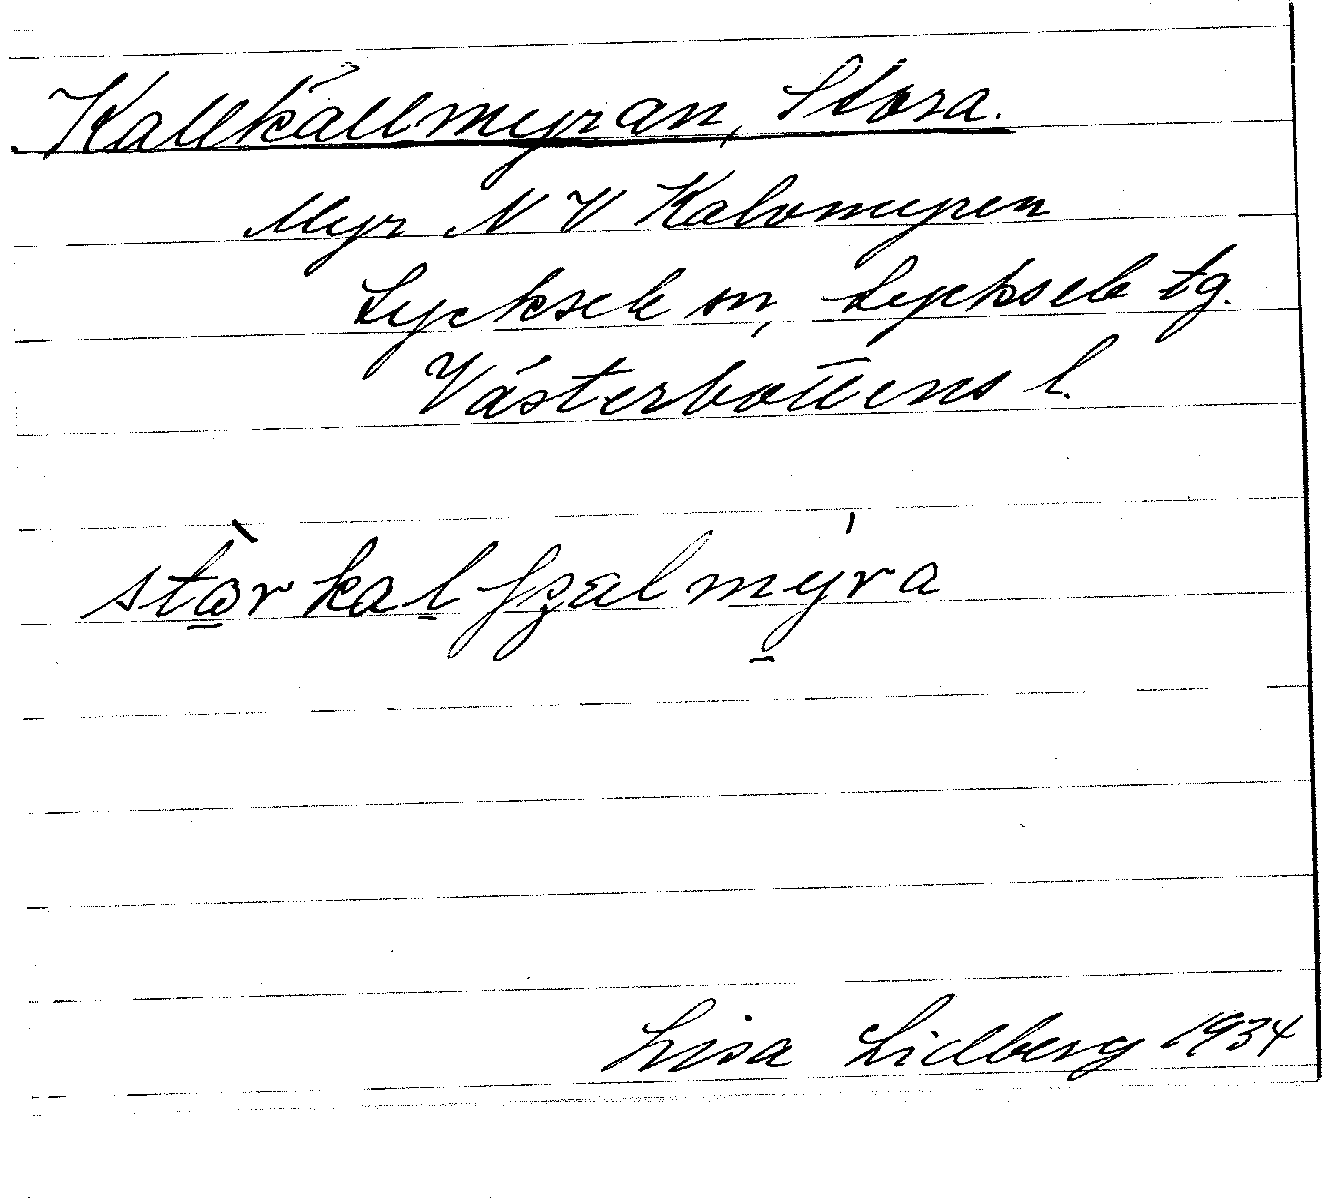 Kallkällmyran, Stora.
Myr NV Kalvmyren
Lycksele sn, Lycksele tg.
Västerbottens l.
Lisa Lidberg 1934